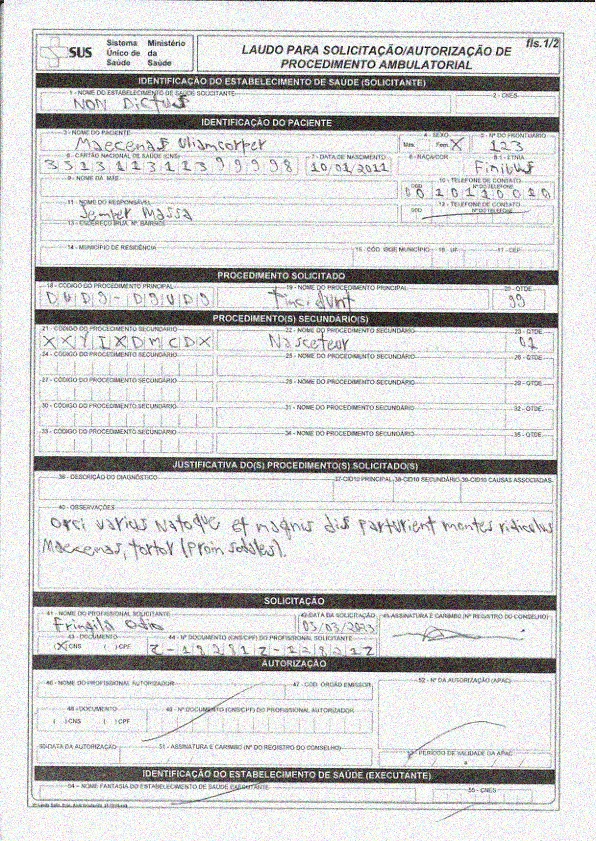 fls.1/2
SUS Sistema Único de Saúde Ministério da Saúde
LAUDO PARA SOLICITAÇÃO/AUTORIZAÇÃO DE PROCEDIMENTO AMBULATORIAL
IDENTIFICAÇÃO DO ESTABELECIMENTO DE SAÚDE (SOLICITANTE)
1 - NOME DO ESTABELECIMENTO DE SAÚDE SOLICITANTE 2 - CNES
NON Dictus
IDENTIFICAÇÃO DO PACIENTE
3 - NOME DO PACIENTE 4 - SEXO 5 - Nº DO PRONTUÁRIO
Maecenas Uliamcorper Mas. Fem. X 123
6 - CARTÃO NACIONAL DE SAÚDE (CNS) 7 - DATA DE NASCIMENTO 8 - RAÇA/COR 8.1 - ETNIA
10/01/2011 Finibus
9 - NOME DA MÃE 10 - TELEFONE DE CONTATO
DDD Nº DO TELEFONE
11 - NOME DO RESPONSÁVEL 12 - TELEFONE DE CONTATO
Semper Massa DDD Nº DO TELEFONE
13 - ENDEREÇO (RUA, Nº, BAIRRO)
14 - MUNICÍPIO DE RESIDÊNCIA 15 - CÓD. IBGE MUNICÍPIO 16 - UF 17 - CEP
PROCEDIMENTO SOLICITADO
18 - CÓDIGO DO PROCEDIMENTO PRINCIPAL 19 - NOME DO PROCEDIMENTO PRINCIPAL 20 - QTDE.
Tincidunt 99
PROCEDIMENTO(S) SECUNDÁRIO(S)
21 - CÓDIGO DO PROCEDIMENTO SECUNDÁRIO 22 - NOME DO PROCEDIMENTO SECUNDÁRIO 23 - QTDE.
XXYIXDMCDX Nasceteur 01
24 - CÓDIGO DO PROCEDIMENTO SECUNDÁRIO 25 - NOME DO PROCEDIMENTO SECUNDÁRIO 26 - QTDE.
27 - CÓDIGO DO PROCEDIMENTO SECUNDÁRIO 28 - NOME DO PROCEDIMENTO SECUNDÁRIO 29 - QTDE.
30 - CÓDIGO DO PROCEDIMENTO SECUNDÁRIO 31 - NOME DO PROCEDIMENTO SECUNDÁRIO 32 - QTDE.
33 - CÓDIGO DO PROCEDIMENTO SECUNDÁRIO 34 - NOME DO PROCEDIMENTO SECUNDÁRIO 35 - QTDE.
JUSTIFICATIVA DO(S) PROCEDIMENTO(S) SOLICITADO(S)
36 - DESCRIÇÃO DO DIAGNÓSTICO 37-CID10 PRINCIPAL 38-CID10 SECUNDÁRIO 39-CID10 CAUSAS ASSOCIADAS
40 - OBSERVAÇÕES
Orci varius Natoque et magnus dis parturient montes ridiculus
Maecenas, tortor (Proin sodales).
SOLICITAÇÃO
41 - NOME DO PROFISSIONAL SOLICITANTE 42-DATA DA SOLICITAÇÃO 45-ASSINATURA E CARIMBO (Nº REGISTRO DO CONSELHO)
Fringila Odio 03/03/2013
43 - DOCUMENTO 44 - Nº DOCUMENTO (CNS/CPF) DO PROFISSIONAL SOLICITANTE
(X) CNS ( ) CPF
AUTORIZAÇÃO
46 - NOME DO PROFISSIONAL AUTORIZADOR 47 - CÓD. ÓRGÃO EMISSOR 52 - Nº DA AUTORIZAÇÃO (APAC)
48 - DOCUMENTO 49 - Nº DOCUMENTO (CNS/CPF) DO PROFISSIONAL AUTORIZADOR
( ) CNS ( ) CPF
50-DATA DA AUTORIZAÇÃO 51 - ASSINATURA E CARIMBO (Nº DO REGISTRO DO CONSELHO) 53 - PERÍODO DE VALIDADE DA APAC
IDENTIFICAÇÃO DO ESTABELECIMENTO DE SAÚDE (EXECUTANTE)
54 - NOME FANTASIA DO ESTABELECIMENTO DE SAÚDE EXECUTANTE 55 - CNES